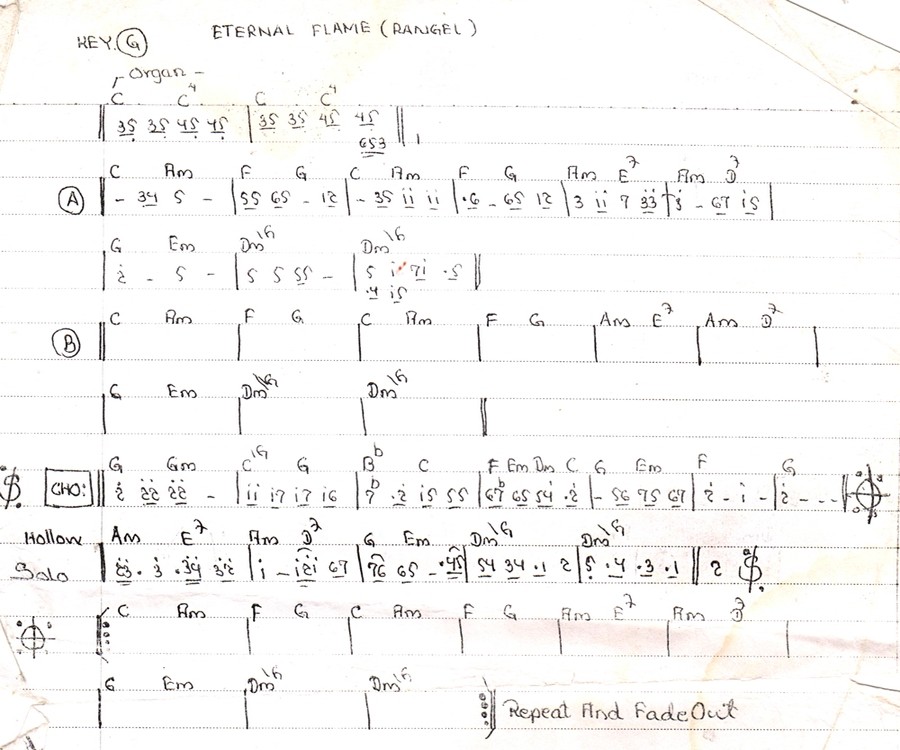 ETERNAL FLAME (RANGEL)
KEY. G
Organ -
C C4 C C4
|| 35 35 45 45 | 35 35 45 45 ||
653
C Am F G C Am F G Am E7 Am D7
A || - 34 5 - | 55 65 - 12 | - 35 ii ii | .6 - 65 12 | 3 ii 7 33 | i - 67 i5 |
G Em Dm\G Dm\G
| 2 - 5 - | 5 5 55 - | 5 i 7i .5 ||
.4 i5
C Am F G C Am F G Am E7 Am D7
B
G Em Dm\G Dm\G
G Gm C\G G Bb C F Em Dm C G Em F G
CHO: || 2 22 22 - | ii i7 i7 i6 | 7b .2 i5 55 | 67b 65 54 .2 | - 56 75 67 | 2 - i - | 2 - - - |
Hollow Am E7 Am D7 G Em Dm\G Dm\G
Solo || 23. 3 .34 32 | i - i2i 67 | 76 65 - .45 | 54 34 .1 2 | 5 .4 .3 .1 || 2
C Am F G C Am F G Am E7 Am D7
G Em Dm\G Dm\G
Repeat And Fade Out